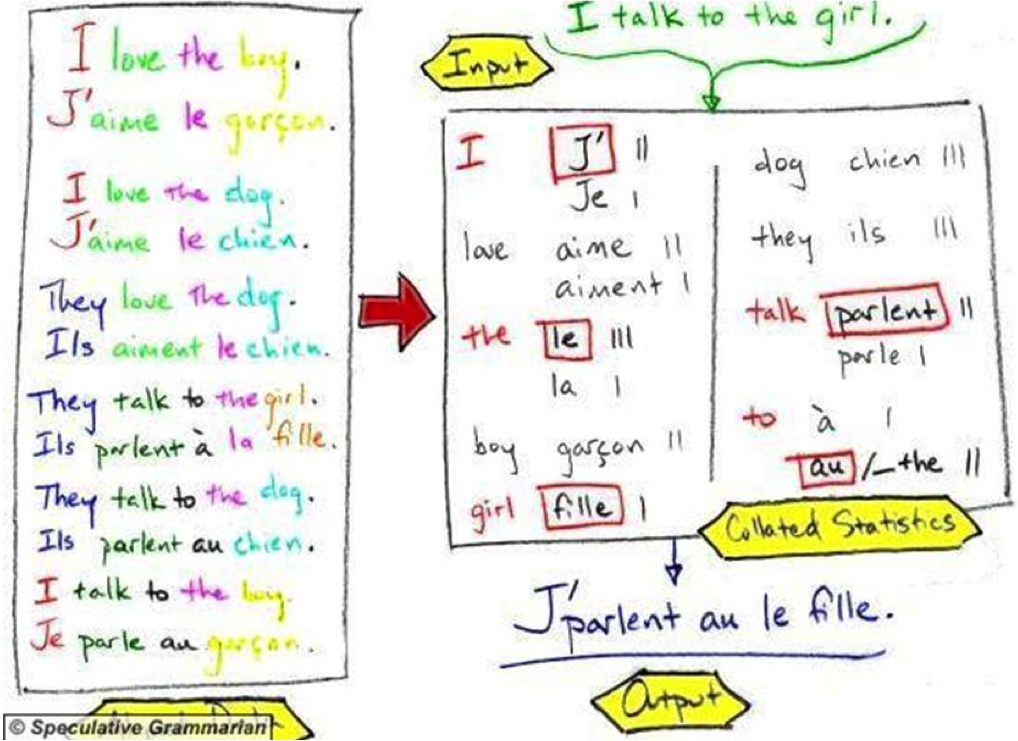 I love the boy.
J'aime le garçon.
I love the dog.
J'aime le chien.
They love the dog.
Ils aiment le chien.
They talk to the girl.
Ils parlent à la fille.
They talk to the dog.
Ils parlent au chien.
I talk to the boy.
Je parle au garçon.
© Speculative Grammarian
I talk to the girl.
Input
I J' ||
Je |
love aime ||
aiment |
the le |||
la |
boy garçon ||
girl fille |
dog chien |||
they ils |||
talk parlent ||
parle |
to à |
au /_the ||
Collated Statistics
J'parlent au le fille.
Output